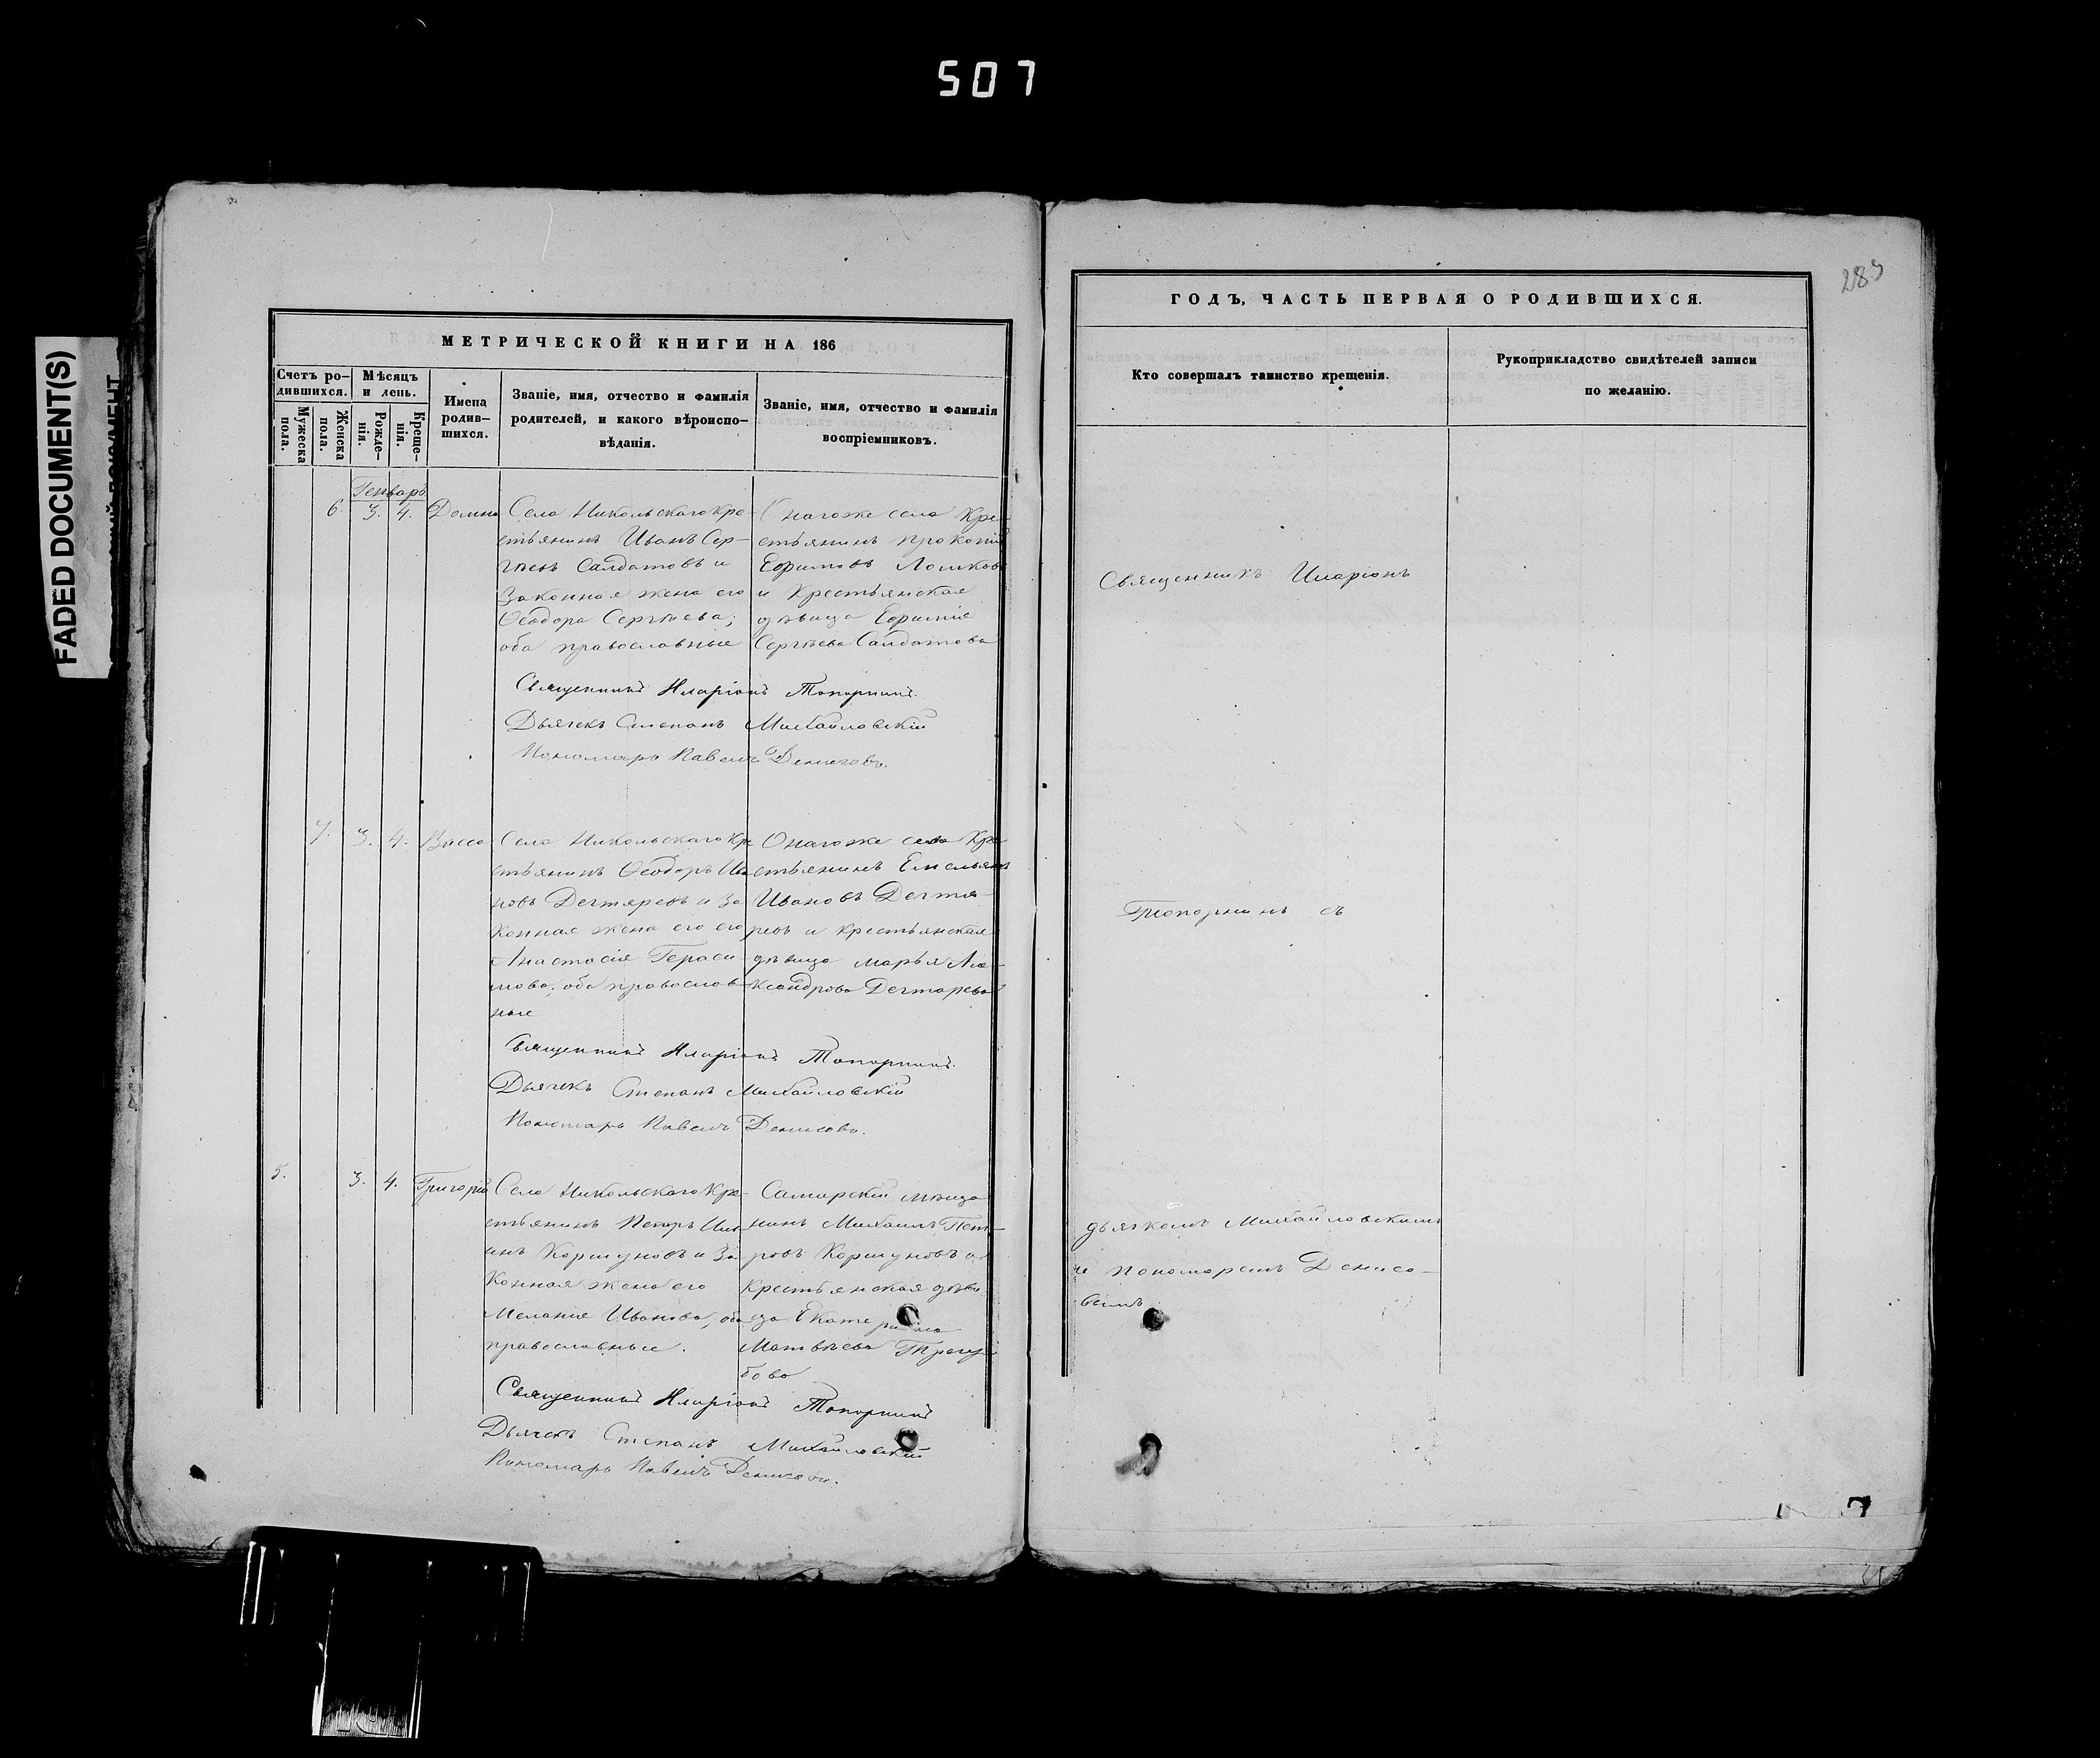 507
FADED DOCUMENT(S)
283
МЕТРИЧЕСКОЙ КНИГИ НА 186
Счетъ ро-
дившихся.
Мѣсяцъ
и день.
Мужеска
пола.
Женска
пола.
Рожде-
нія.
Креще-
нія.
Имена
родив-
шихся.
Званіе, имя, отчество и фамилія
родителей, и какого вѣроиспо-
вѣданія.
Званіе, имя, отчество и фамилія
воспріемниковъ.
Генварь
6. 3. 4. Домна
Села Никольскаго кре-
стьянинъ Иванъ Сер-
гѣевъ Салдатовъ и
законная жена его
Ѳеодора Сергѣева;
оба православные
Онагоже села Кре-
стьянинъ Прокопій
Ефимовъ Ломков
и Крестьянская
дѣвица Ефимія
Сергѣева Салдатова
Священникъ Иларіонъ Топорнинъ.
Дьячекъ Степанъ Михайловскій
Пономарь Павелъ Денисовъ.
7. 3. 4. Васса
Села Никольскаго Кре
стьянинъ Ѳеодоръ Ива
новъ Дегтяревъ и за
конная жена его его
Анастасія Гераси-
мова; оба православ-
ные
Онагоже села Кре
стьянинъ Емельянъ
Ивановъ Дегтя-
ревъ и крестьянская
дѣвица Марья Але-
ксандрова Дегтярева
Священникъ Иларіонъ Топорнинъ.
Дьячекъ Степанъ Михайловскій
Пономарь Павелъ Денисовъ.
5. 3. 4. Григорій
Села Никольскаго Кре-
стьянинъ Петръ
инъ Коршуновъ и За
конная жена его
Меланія Иванова, оба
православные.
Самарскій мѣща
нинъ Михаилъ Пет-
ровъ Коршуновъ и
крестьянская дѣви
ца Екатерина
Матвѣева Трегу
бова
Священникъ Иларіонъ Топорнинъ
Дьячекъ Степанъ Михайловскій
Пономарь Павелъ Денисовъ.
ГОДЪ, ЧАСТЬ ПЕРВАЯ О РОДИВШИХСЯ.
Кто совершалъ таинство крещенія.
Рукоприкладство свидѣтелей записи
по желанію.
Священникъ Иларіонъ
Топорнинъ съ
дьячкомъ Михайловскимъ
и пономаремъ Денисо-
вымъ